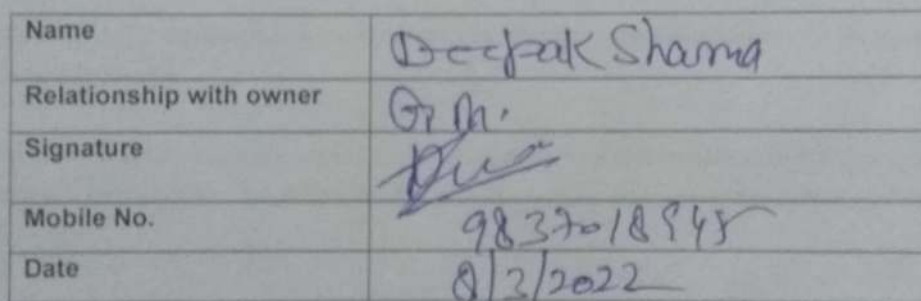 Name Deepak Sharma
Relationship with owner G.M.
Signature
Mobile No.
Date 8/3/2022